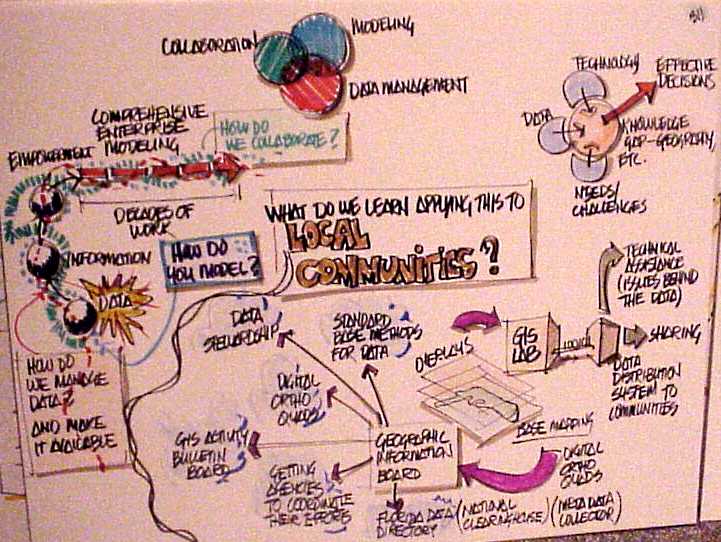 MODELING
COLLABORATION
DATA MANAGEMENT
TECHNOLOGY
EFFECTIVE
DECISIONS
DATA
KNOWLEDGE
GAP-GEOGRAPHY,
ETC.
NEEDS/
CHALLENGES
COMPREHENSIVE
ENTERPRISE
MODELING
HOW DO
WE COLLABORATE?
EMPOWERMENT
DECADES OF
WORK
INFORMATION
HOW DO
YOU MODEL?
DATA
WHAT DO WE LEARN APPLYING THIS TO
LOCAL
COMMUNITIES?
HOW DO
WE MANAGE
DATA?
AND MAKE
IT AVAILABLE
DATA
STEWARDSHIP
STANDARD
BASE METHODS
FOR DATA
OVERLAYS
GIS
LAB
TECHNICAL
ASSISTANCE
(ISSUES BEHIND
THE DATA)
SHARING
DATA
DISTRIBUTION
SYSTEM TO
COMMUNITIES
DIGITAL
ORTHO
QUADS
BASE MAPPING
GIS ACTIVITY
BULLETIN
BOARD
GEOGRAPHIC
INFORMATION
BOARD
DIGITAL
ORTHO
QUADS
GETTING
AGENCIES
TO COORDINATE
THEIR EFFORTS
FLORIDA DATA
DIRECTORY
(NATIONAL
CLEARINGHOUSE)
(META DATA
COLLECTOR)